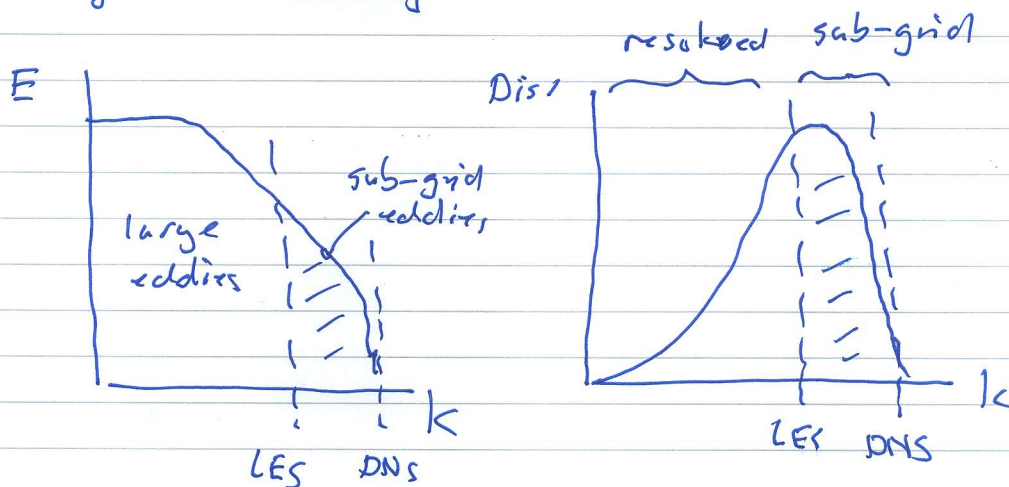 E
large
eddies
sub-grid
eddies
k
LES DNS
resolved sub-grid
Diss
k
LES DNS